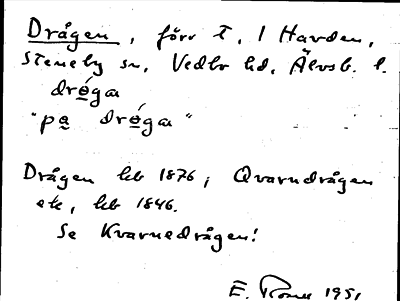 Drågen, förr t. 1 Harden,
Steneby sn, Vedbo hd, Älvsb. l.
drøga
"pa drøga"
Drågen hb 1876; Qvarndrågen
ek, hb 1846.
Se Kvarnedrågen!
E. 1951